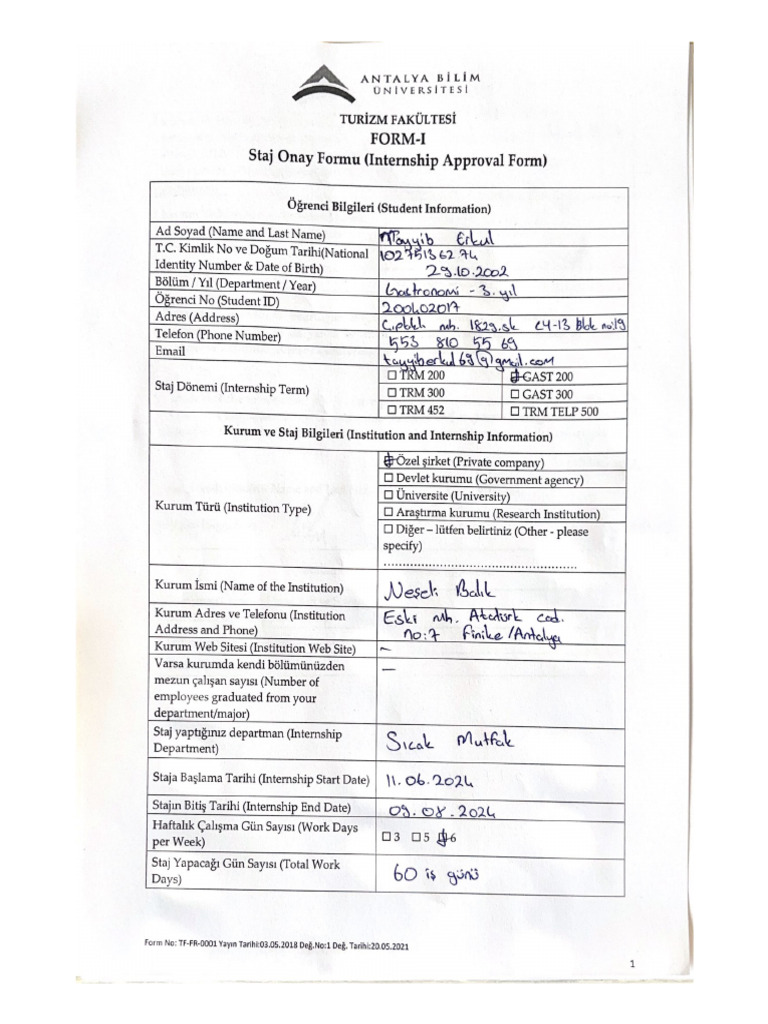 ANTALYA BİLİM
ÜNİVERSİTESİ
TURİZM FAKÜLTESİ
FORM-I
Staj Onay Formu (Internship Approval Form)
Öğrenci Bilgileri (Student Information)
Ad Soyad (Name and Last Name) Tayyib Erkul
T.C. Kimlik No ve Doğum Tarihi(National 10275136274
Identity Number & Date of Birth) 29.10.2002
Bölüm / Yıl (Department / Year) Gastronomi - 3. yıl
Öğrenci No (Student ID) 200402017
Adres (Address) mh. 1829.sk C4-13 Blok no:19
Telefon (Phone Number) 553 810 55 69
Email tayyiberkul69@gmail.com
Staj Dönemi (Internship Term)
☐ TRM 200 GAST 200
☐ TRM 300 ☐ GAST 300
☐ TRM 452 ☐ TRM TELP 500
Kurum ve Staj Bilgileri (Institution and Internship Information)
Kurum Türü (Institution Type)
Özel şirket (Private company)
☐ Devlet kurumu (Government agency)
☐ Üniversite (University)
☐ Araştırma kurumu (Research Institution)
☐ Diğer – lütfen belirtiniz (Other - please
specify)
Kurum İsmi (Name of the Institution) Neşeli Balık
Kurum Adres ve Telefonu (Institution Eski mh. Atatürk cad.
Address and Phone) no:7 Finike/Antalya
Kurum Web Sitesi (Institution Web Site) –
Varsa kurumda kendi bölümünüzden –
mezun çalışan sayısı (Number of
employees graduated from your
department/major)
Staj yaptığınız departman (Internship Sıcak Mutfak
Department)
Staja Başlama Tarihi (Internship Start Date) 11.06.2024
Stajın Bitiş Tarihi (Internship End Date) 09.08.2024
Haftalık Çalışma Gün Sayısı (Work Days ☐3 ☐5 6
per Week)
Staj Yapacağı Gün Sayısı (Total Work 60 iş günü
Days)
Form No: TF-FR-0001 Yayın Tarihi:03.05.2018 Değ.No:1 Değ. Tarihi:20.05.2021
1